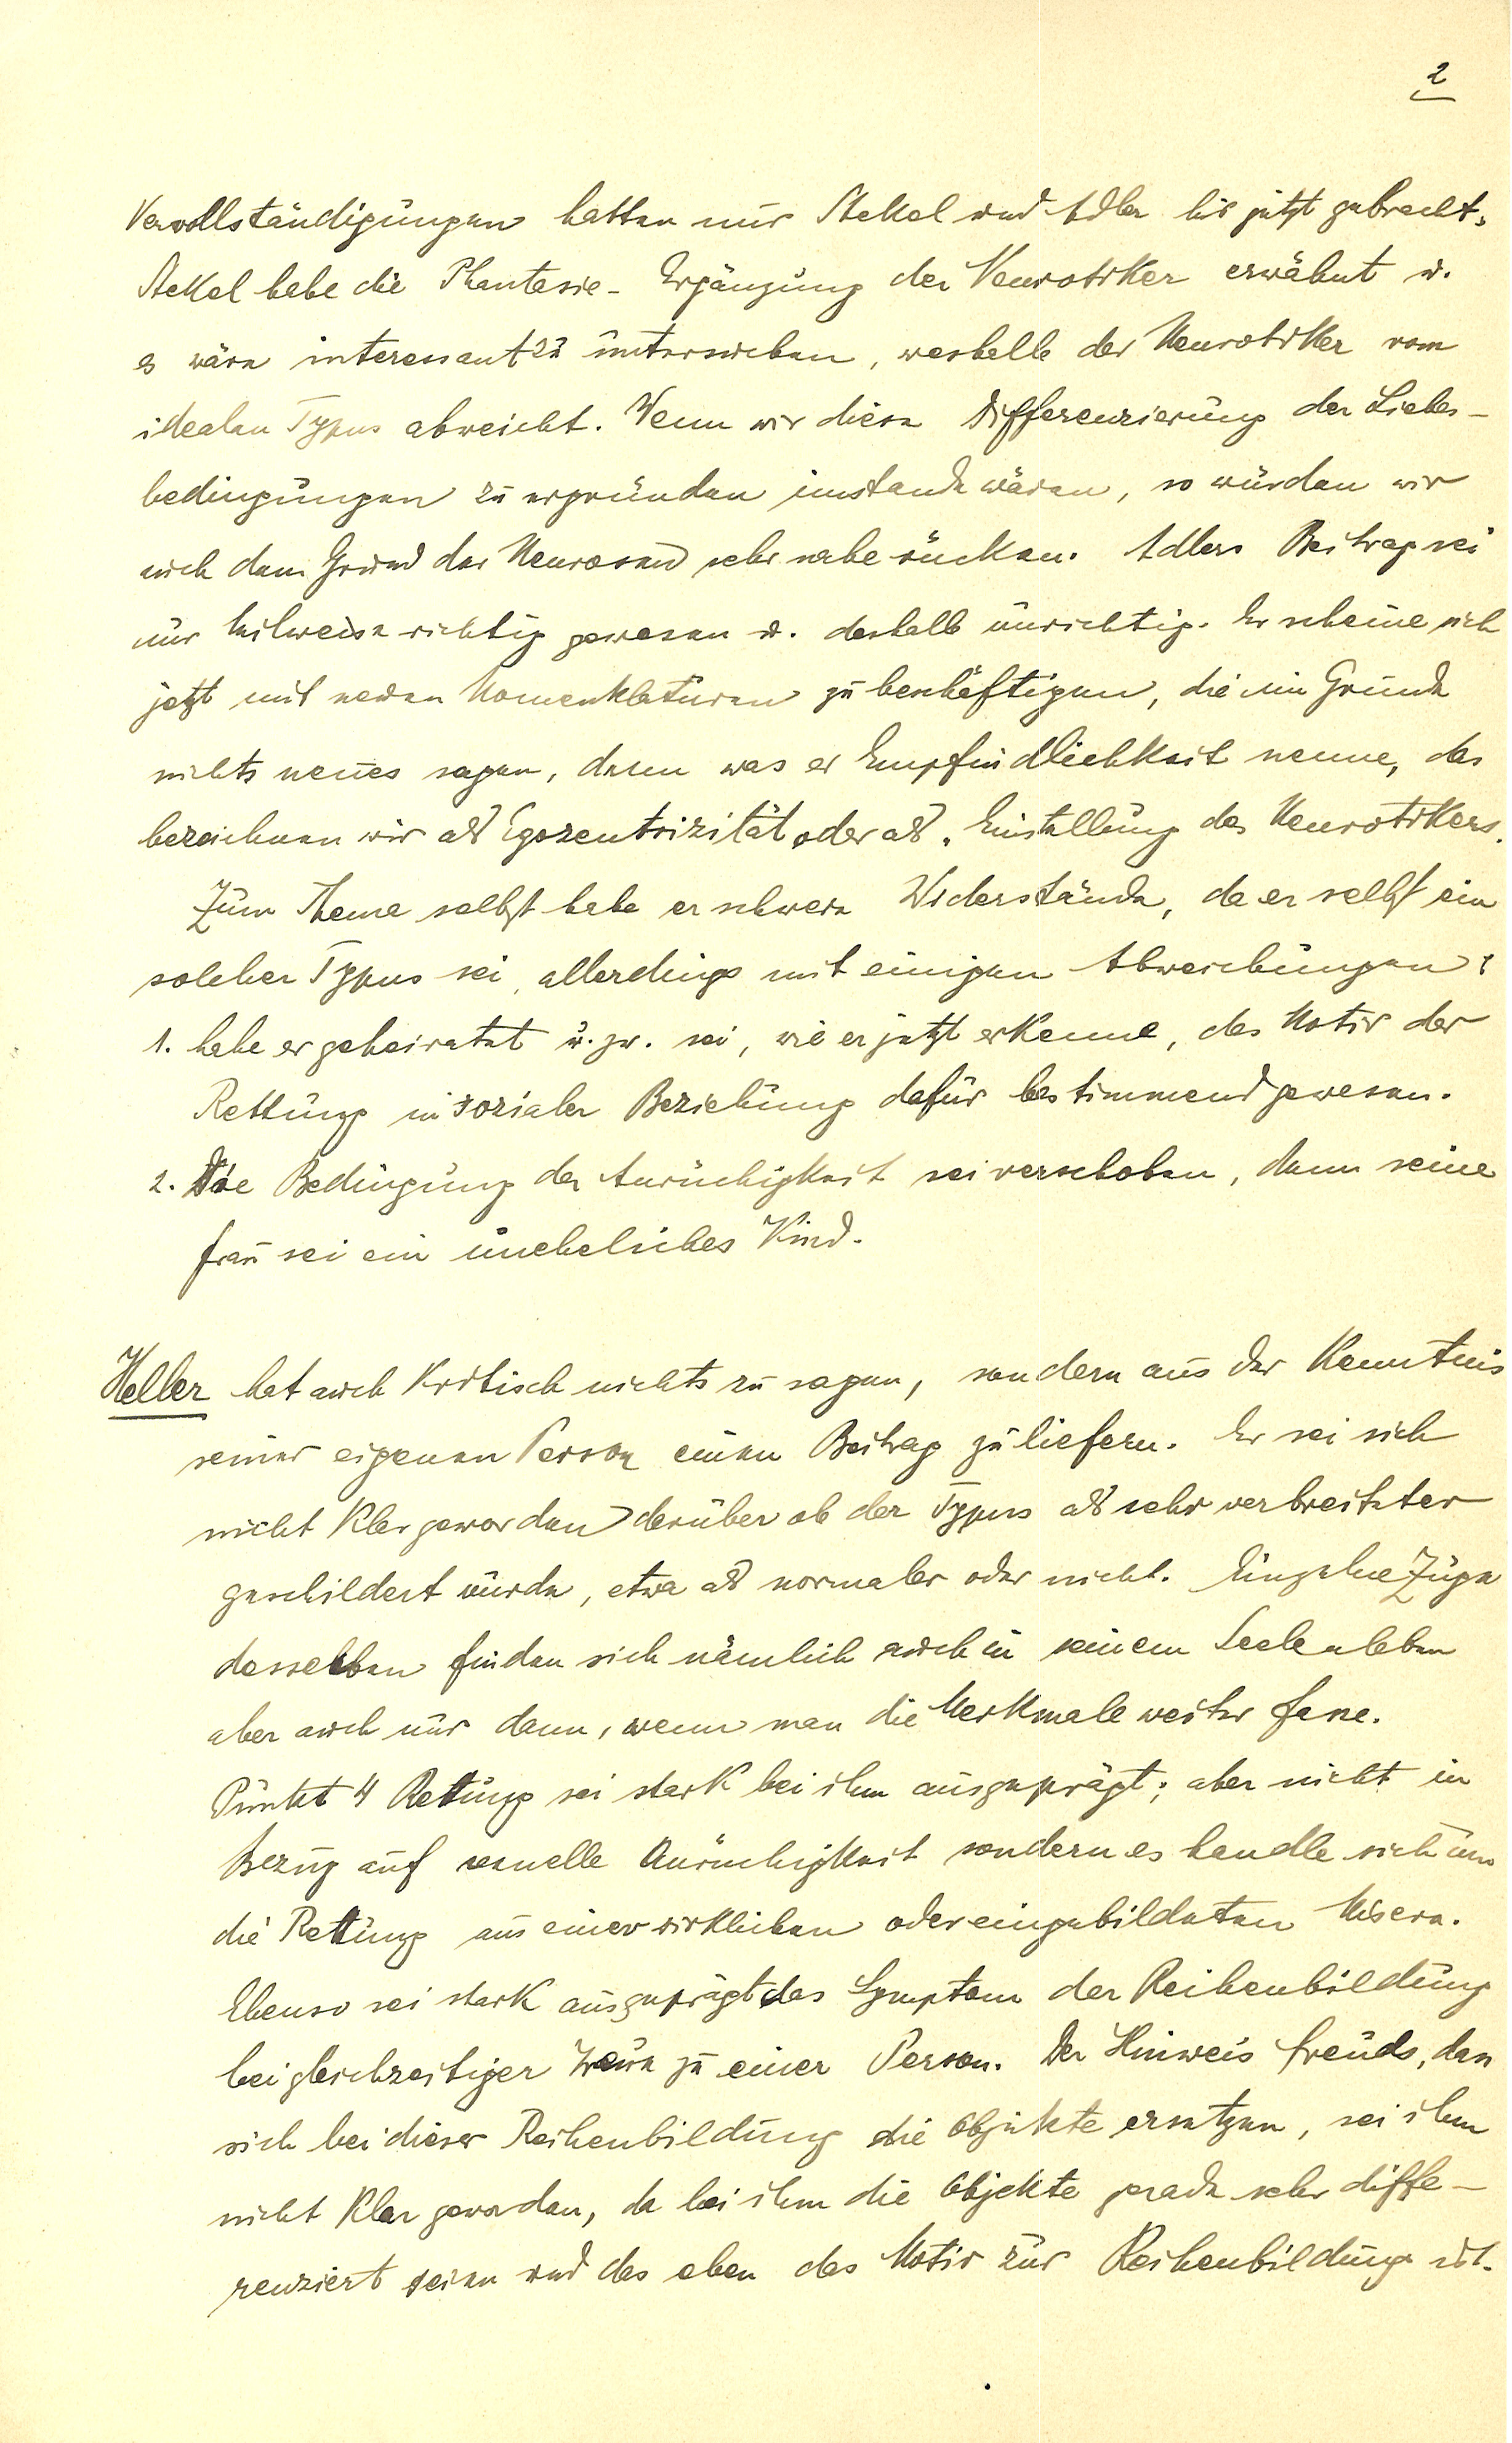 2
Vervollständigungen hatten nur Stekel und Adler bis jetzt gebracht.
Stekel habe die Phantasie-Ergänzung der Neurotiker erwähnt u.
es wäre interessant zu untersuchen, weshalb der Neurotiker vom
idealen Typus abweicht. Wenn wir diese Differenzierung der Liebes-
bedingungen zu ergründen imstande wären, so würden wir
auch dem Grund der Neurosen sehr nahe rücken. Adlers Beitrag sei
nur teilweise richtig gewesen u. deshalb unrichtig. Er scheine sich
jetzt mit neuen Nomenklaturen zu beschäftigen, die im Grunde
nichts neues sagen, denn was er Empfindlichkeit nenne, das
bezeichnen wir als Egozentrizität oder als „Einstellung des Neurotikers.
Zum Thema selbst habe er schwere Widerstände, da er selbst ein
solcher Typus sei, allerdings mit einigen Abweichungen:
1. habe er geheiratet u. zw. sei, wie er jetzt erkenne, das Motiv der
Rettung in sozialer Beziehung dafür bestimmend gewesen.
2. Die Bedingung der Anrüchigkeit sei verschoben, denn seine
Frau sei ein uneheliches Kind.
Heller hat auch kritisch nichts zu sagen, sondern aus der Kenntnis
seiner eigenen Person einen Beitrag zu liefern. Er sei sich
nicht klar geworden darüber ob der Typus als sehr verbreiteter
geschildert wurde, etwa als normaler oder nicht. Einzelne Züge
desselben finden sich nämlich auch in seinem Seelenleben
aber auch nur dann, wenn man die Merkmale weiter fasse.
Punkt 4 Rettung sei stark bei ihm ausgeprägt; aber nicht in
Bezug auf sexuelle Anrüchigkeit sondern es handle sich um
die Rettung aus einer wirklichen oder eingebildeten Misere.
Ebenso sei stark ausgeprägt das Symptom der Reihenbildung
bei gleichzeitiger Treue zu einer Person. Der Hinweis Freuds, dass
sich bei dieser Reihenbildung die Objekte ersetzen, sei ihm
nicht klar geworden, da bei ihm die Objekte gerade sehr diffe-
renziert seien und das eben das Motiv zur Reihenbildung ist.